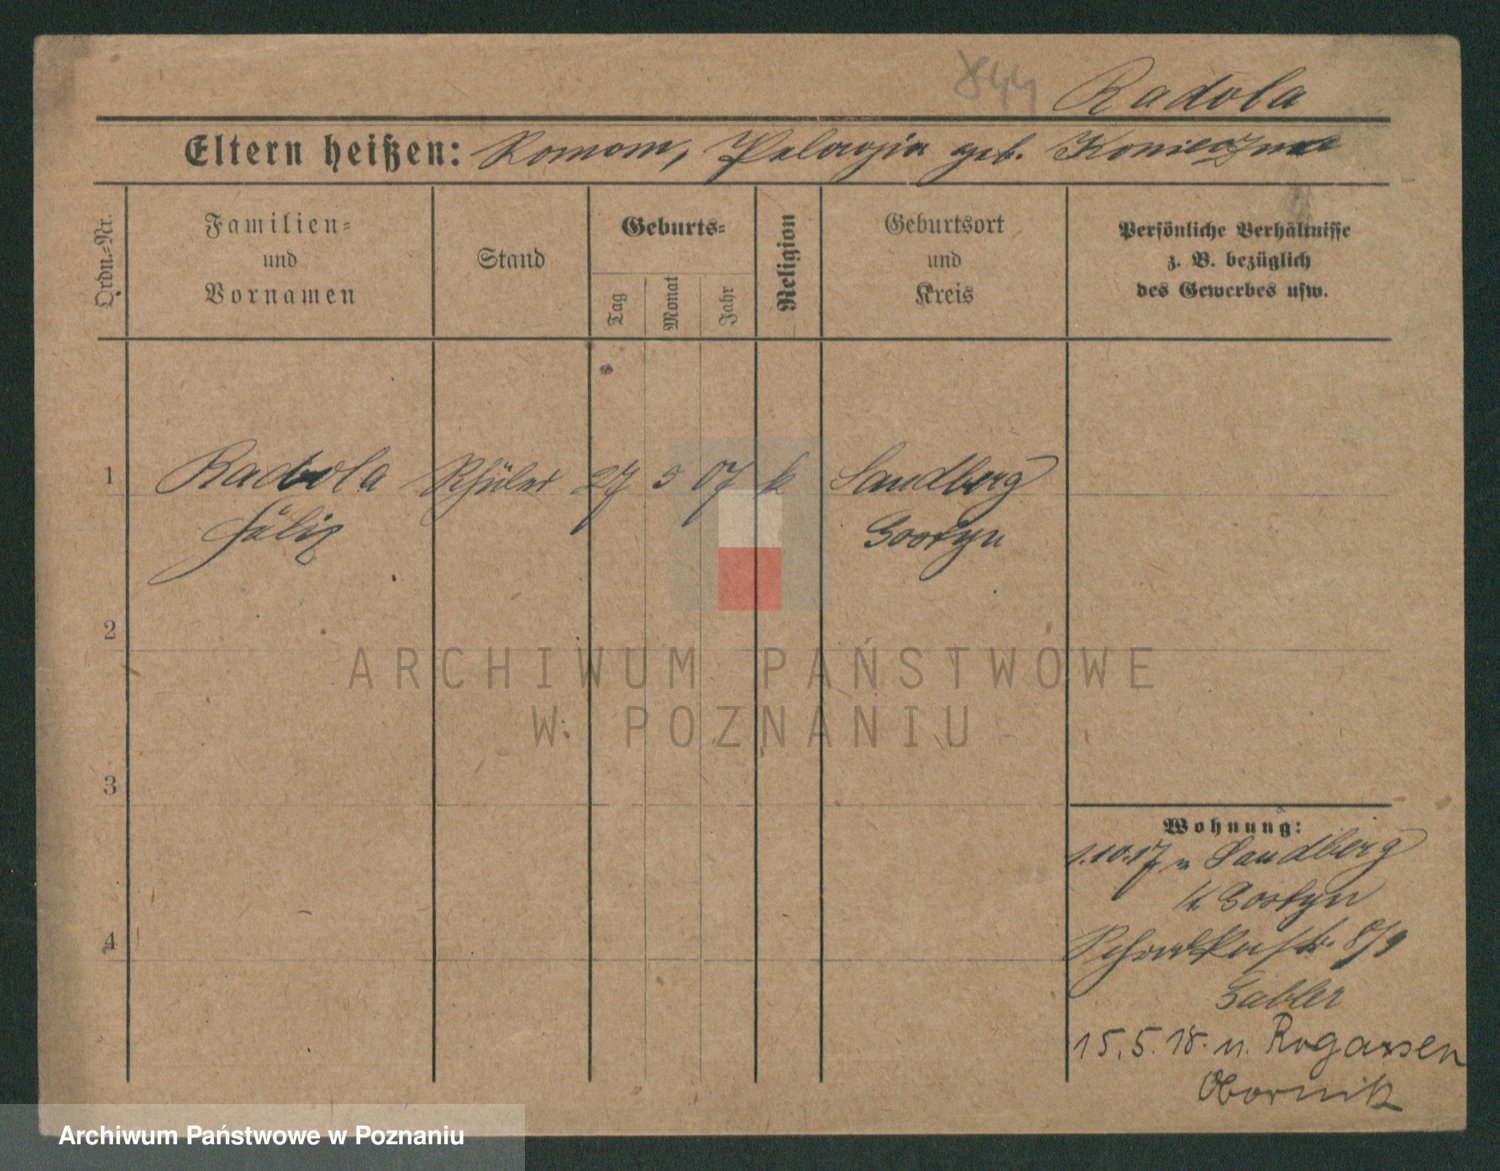 844 Radola
Eltern heißen: Roman, Pelagia geb. Konieczna
Ordn.-Nr.
Familien-
und
Vornamen
Stand
Geburts-
Tag
Monat
Jahr
Religion
Geburtsort
und
Kreis
Persönliche Verhältnisse
z. B. bezüglich
des Gewerbes usw.
1 Radola Schüler 27 5 07 k Sandberg
Felix Gostyn
2
3
4
Wohnung:
1.10.17 v Sandberg
Kr. Gostyn
8/9
Gabler
15.5.18. n. Rogasen
Obornik
ARCHIWUM PAŃSTWOWE
W POZNANIU
Archiwum Państwowe w Poznaniu